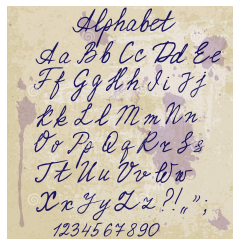 Alphabet
Aa Bb Cc Dd Ee
Ff Gg Hh Ii Jj
Kk Ll Mm Nn
Oo Pp Qq Rr Ss
Tt Uu Vv Ww
Xx Yy Zz ?!„";
1234567890